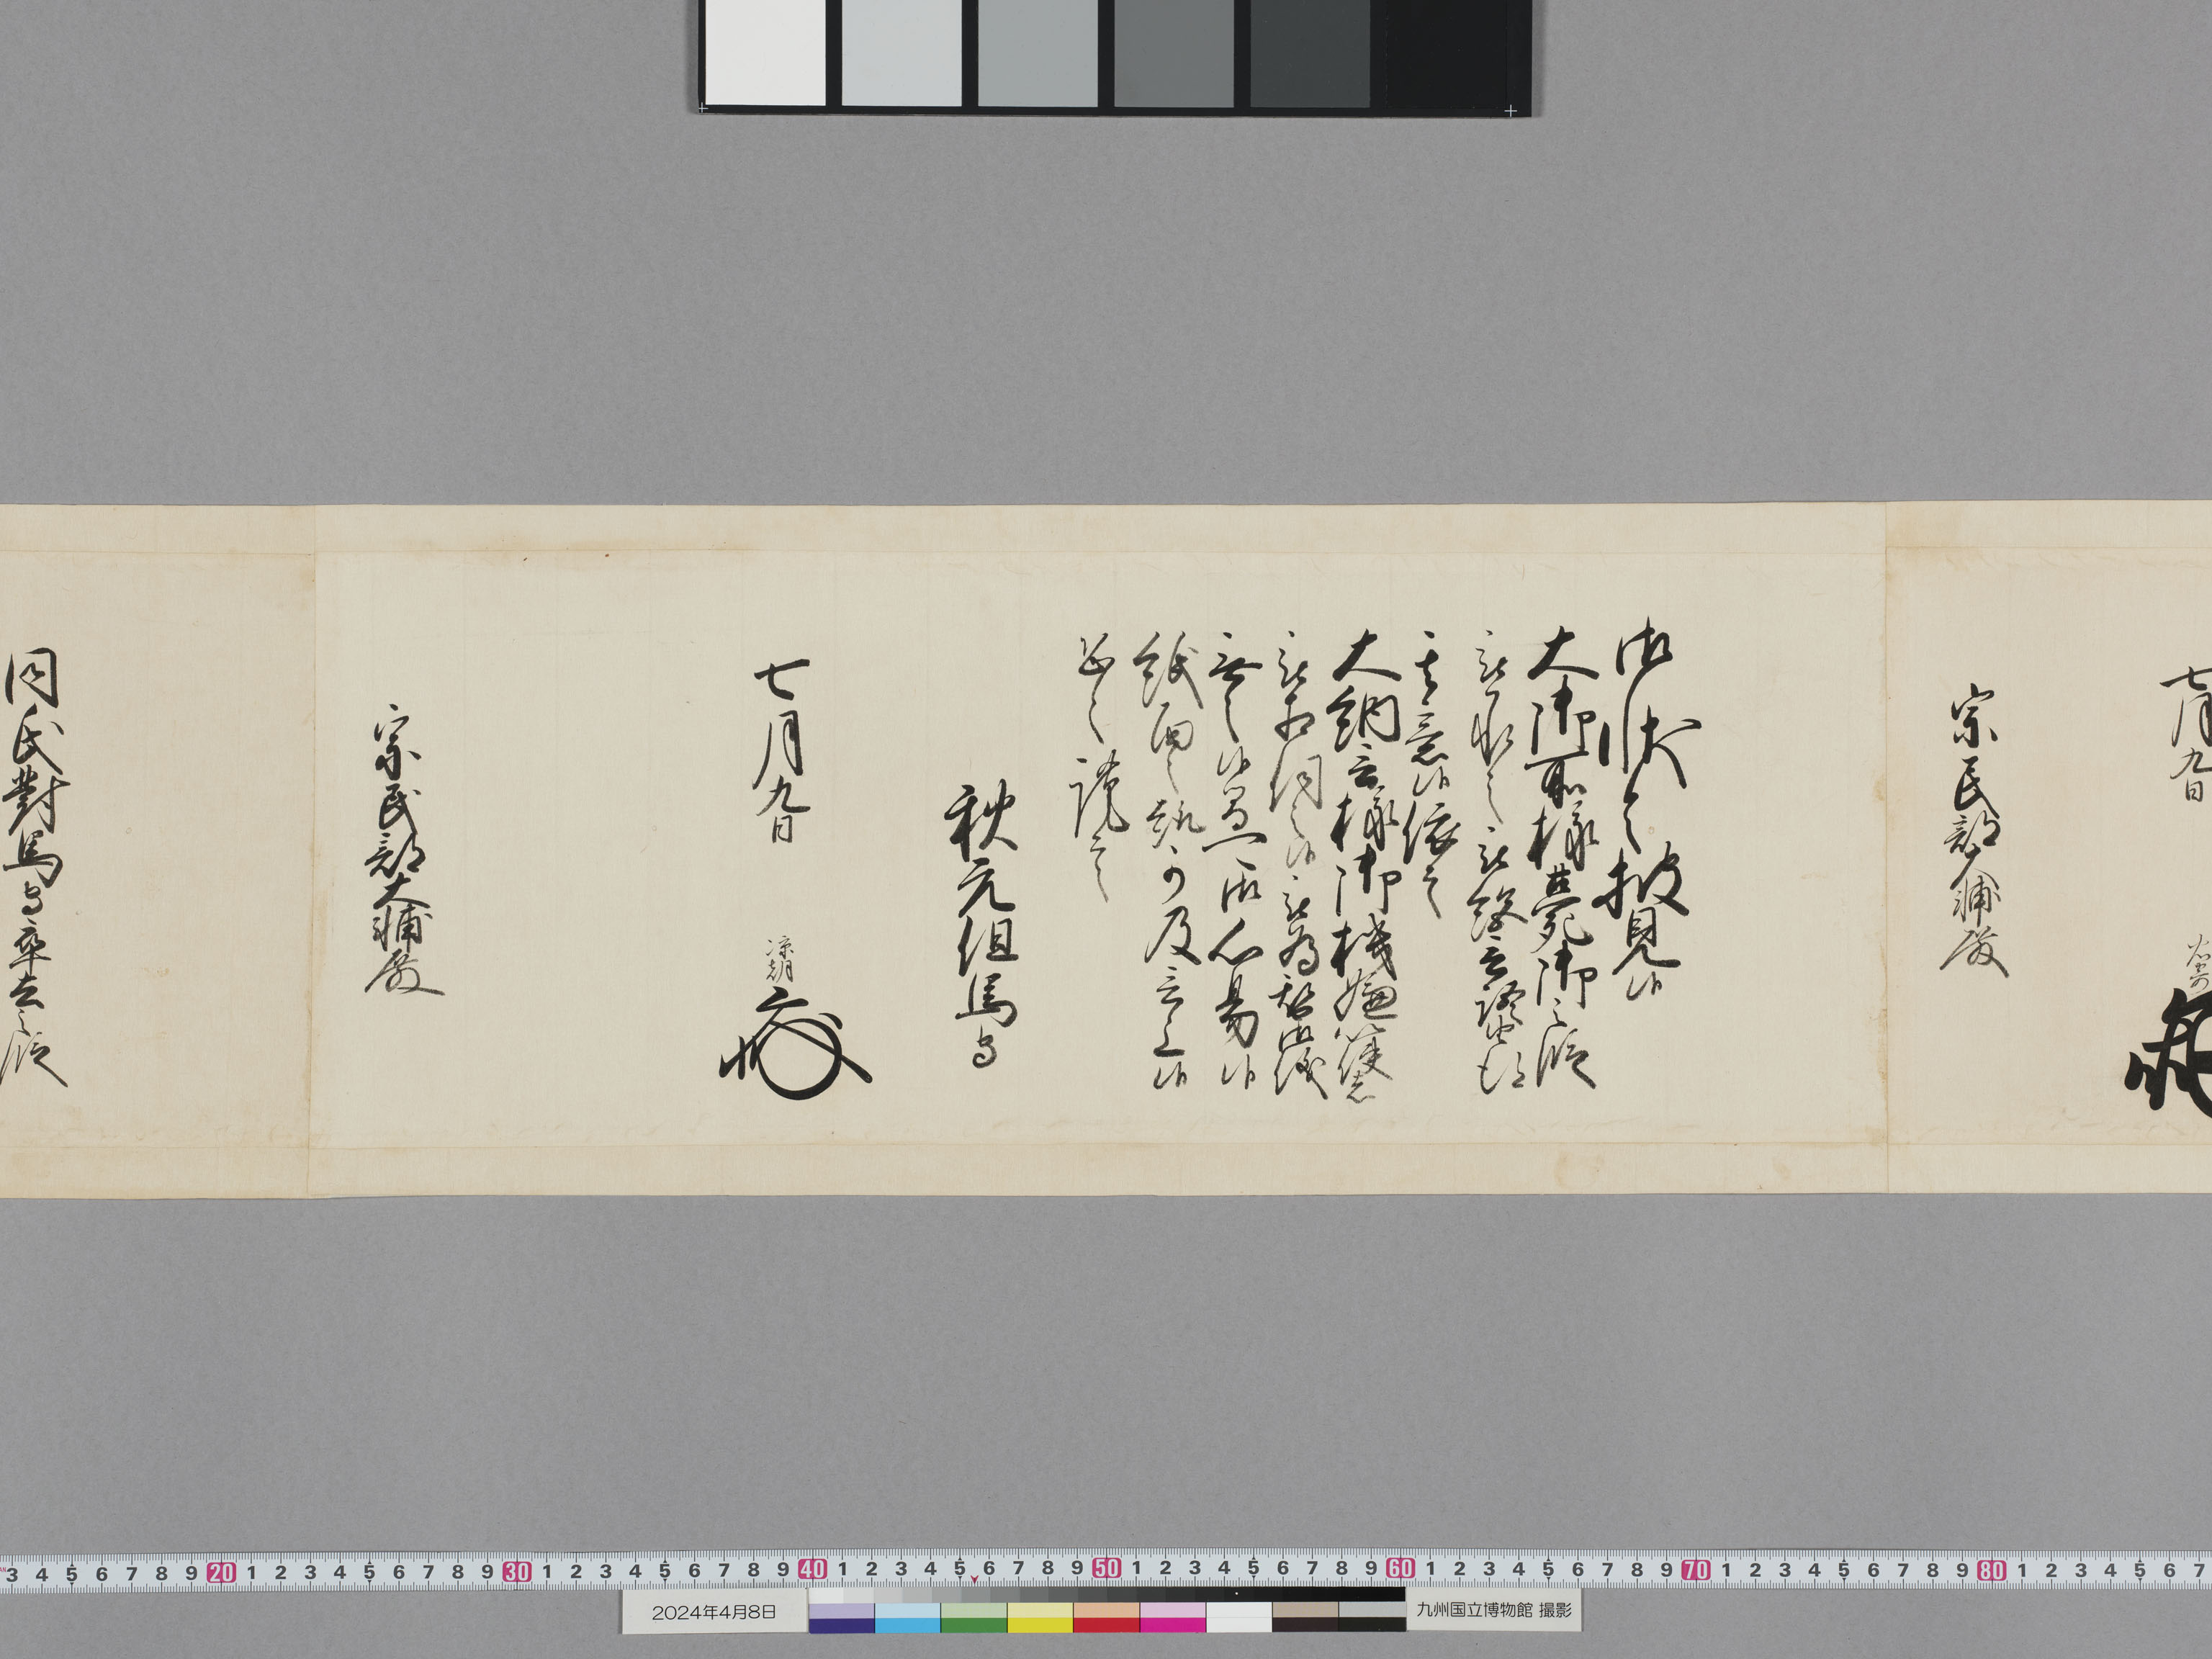 七月九日
宗民部大輔殿
御状令披見候
大御所様薨御之段
被承之被絶言語
其意候依之
大納言様御機嫌
被相伺之候被為替御儀
無之候御心易候
紙面之趣可及言上候
恐々謹言
秋元但馬守
七月九日
凉朝
宗民部大輔殿
同氏對馬守卒去之段
3 4 5 6 7 8 9 20 1 2 3 4 5 6 7 8 9 30 1 2 3 4 5 6 7 8 9 40 1 2 3 4 5 6 7 8 9 50 1 2 3 4 5 6 7 8 9 60 1 2 3 4 5 6 7 8 9 70 1 2 3 4 5 6 7 8 9 80 1 2 3 4 5 6 7
2024年4月8日
九州国立博物館 撮影